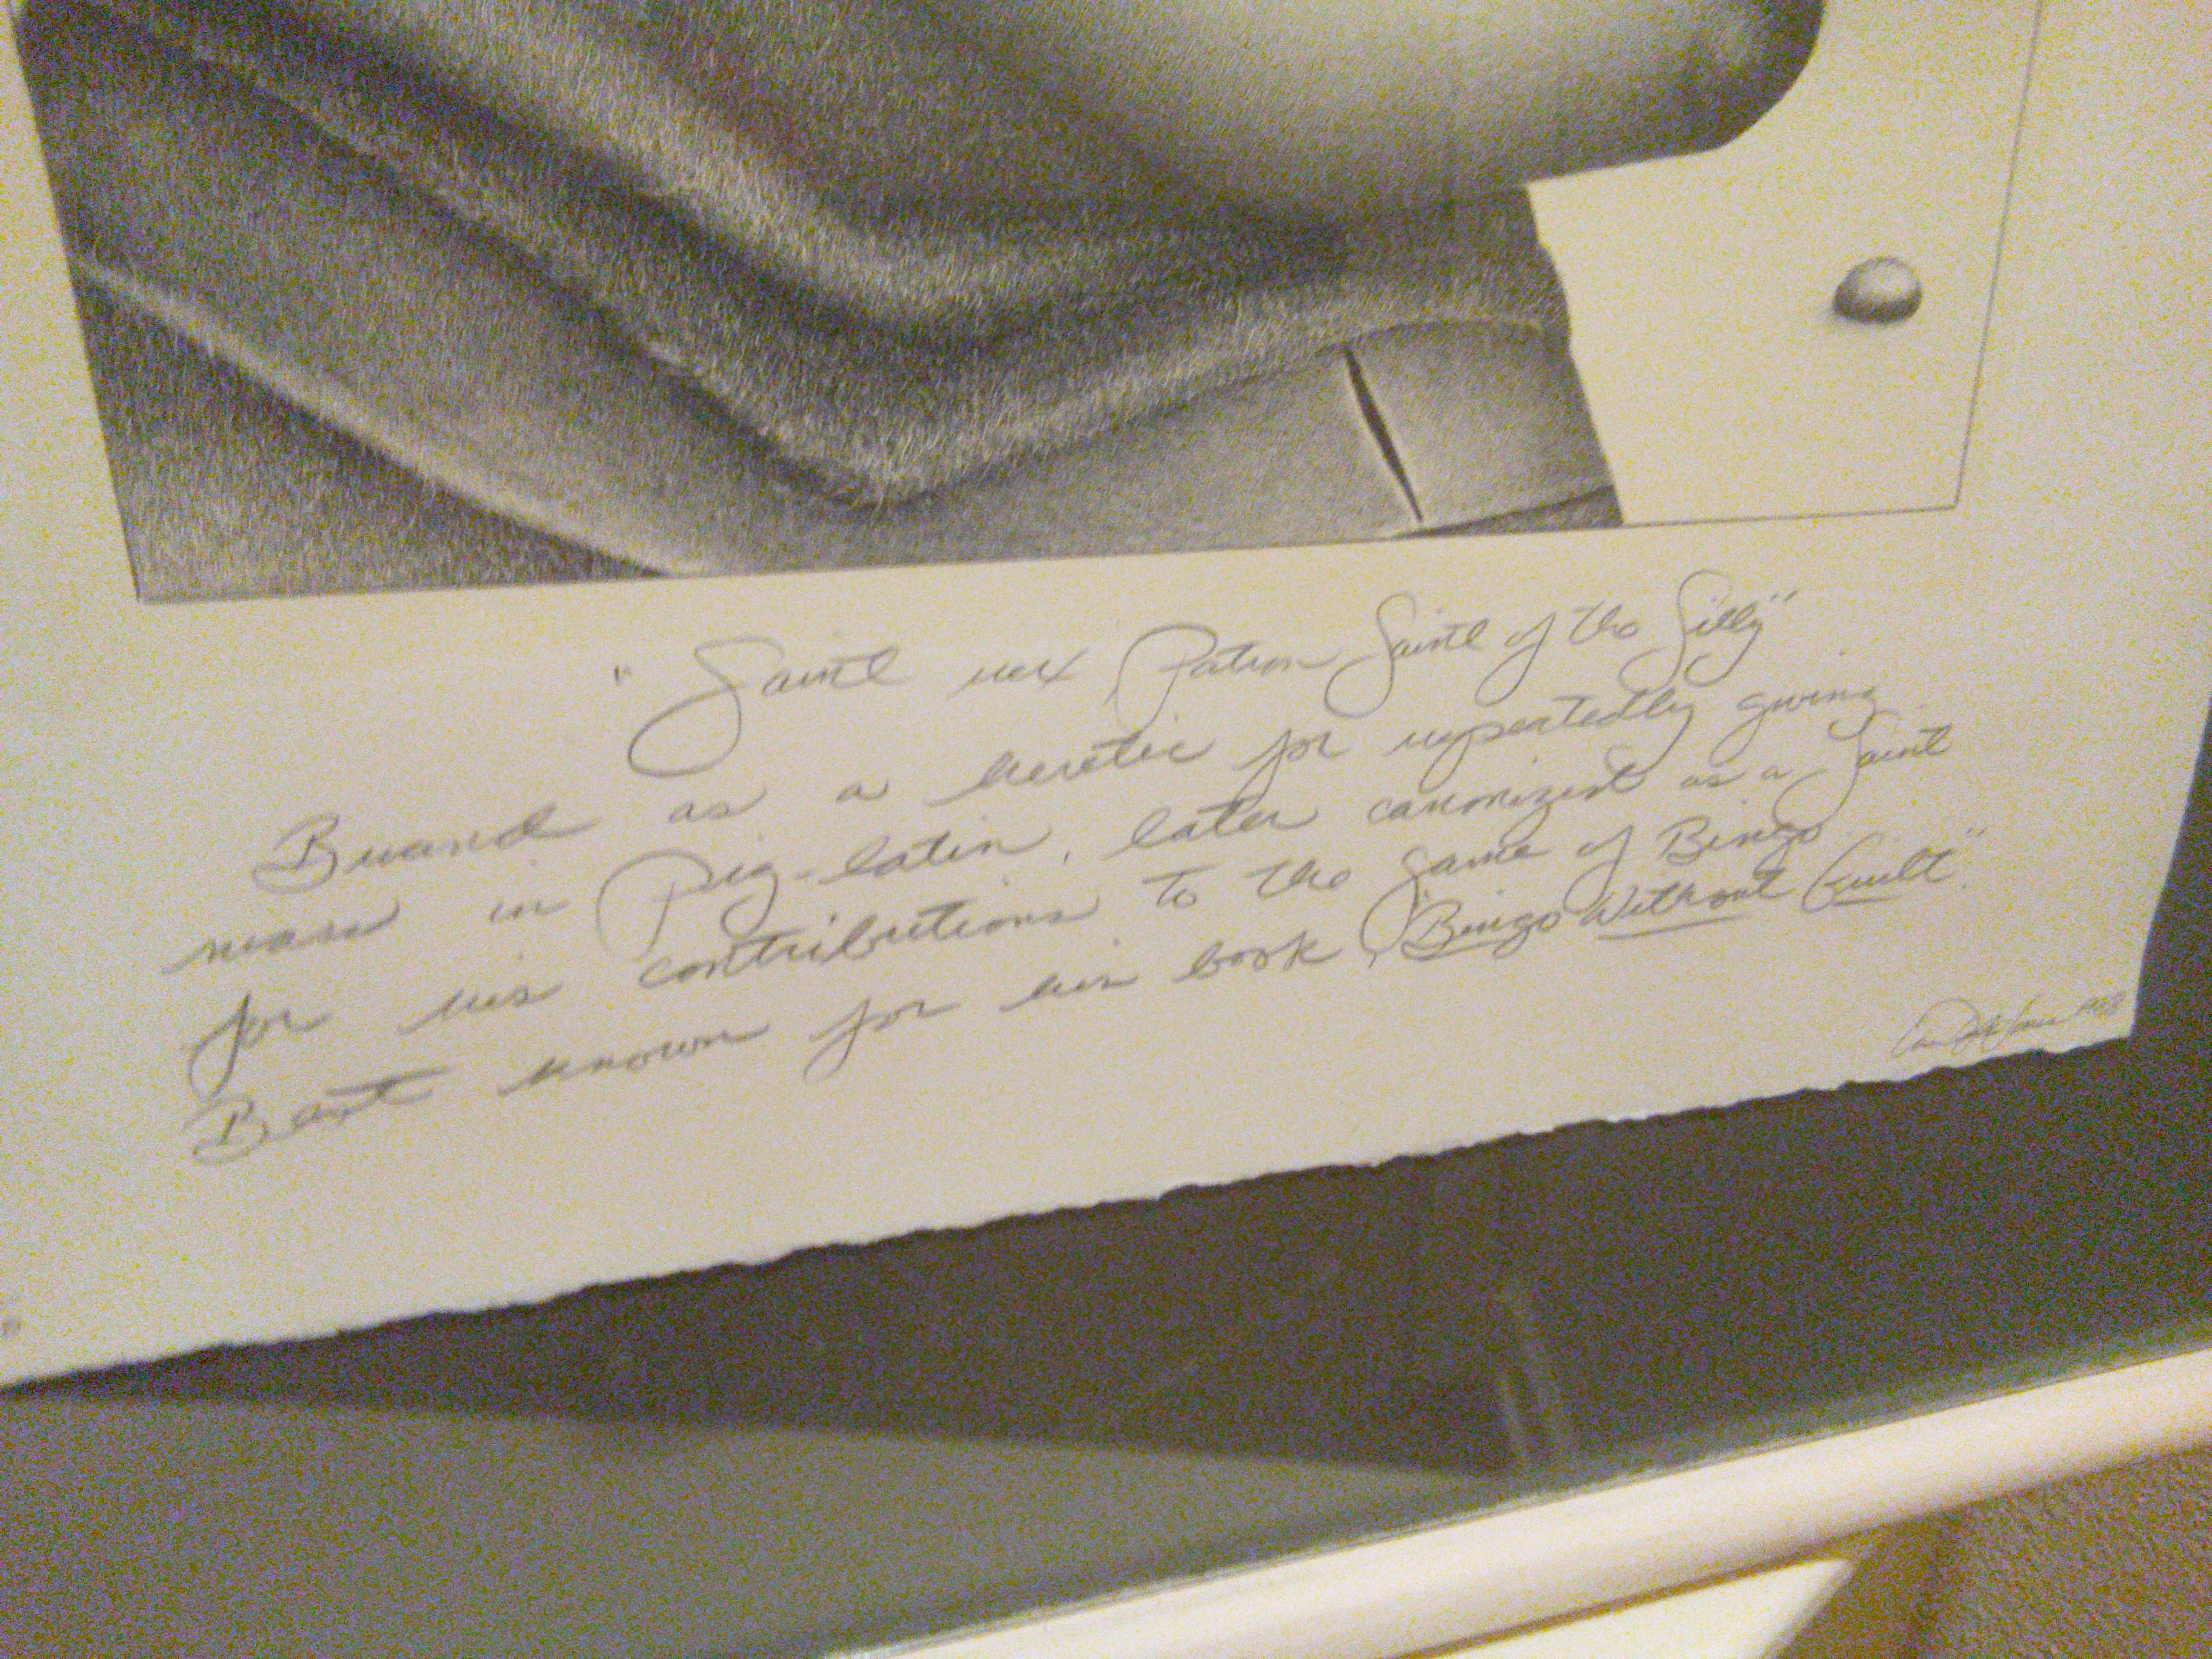 "Saint rex Patron Saint of the Silly"
Burned as a heretic for repeatedly giving
mass in Pig-latin, later canonized as a Saint
for his contributions to the game of Bingo.
Best known for his book, "Bingo Without Guilt".